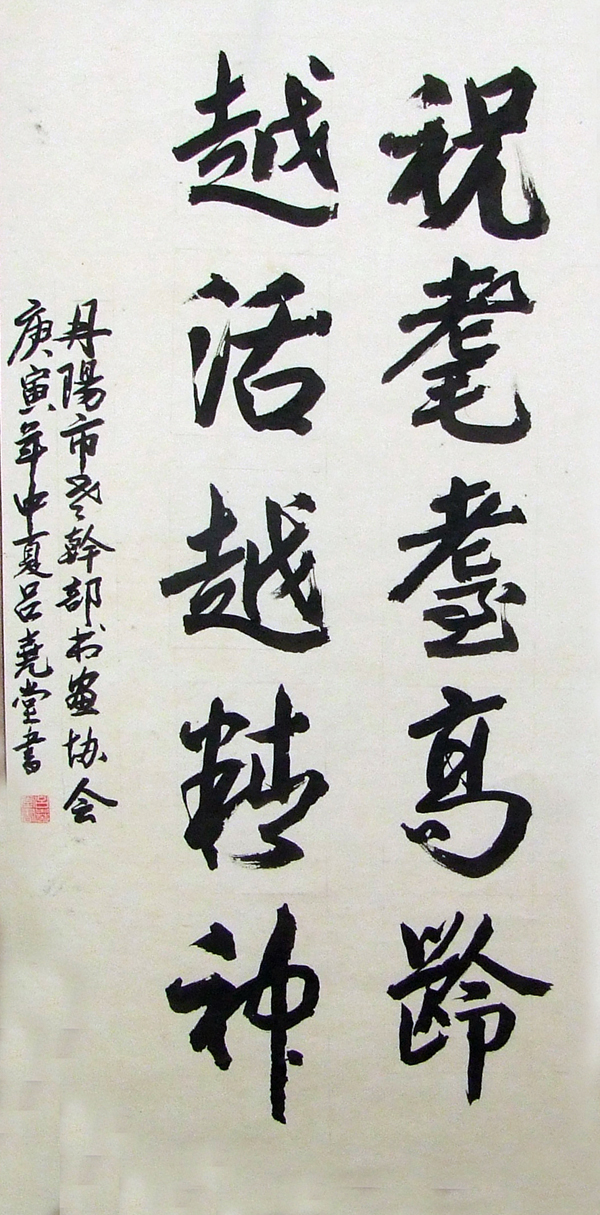 祝耄耋高龄
越活越精神
丹陽市老幹部书画协会
庚寅年中夏吕堯堂書